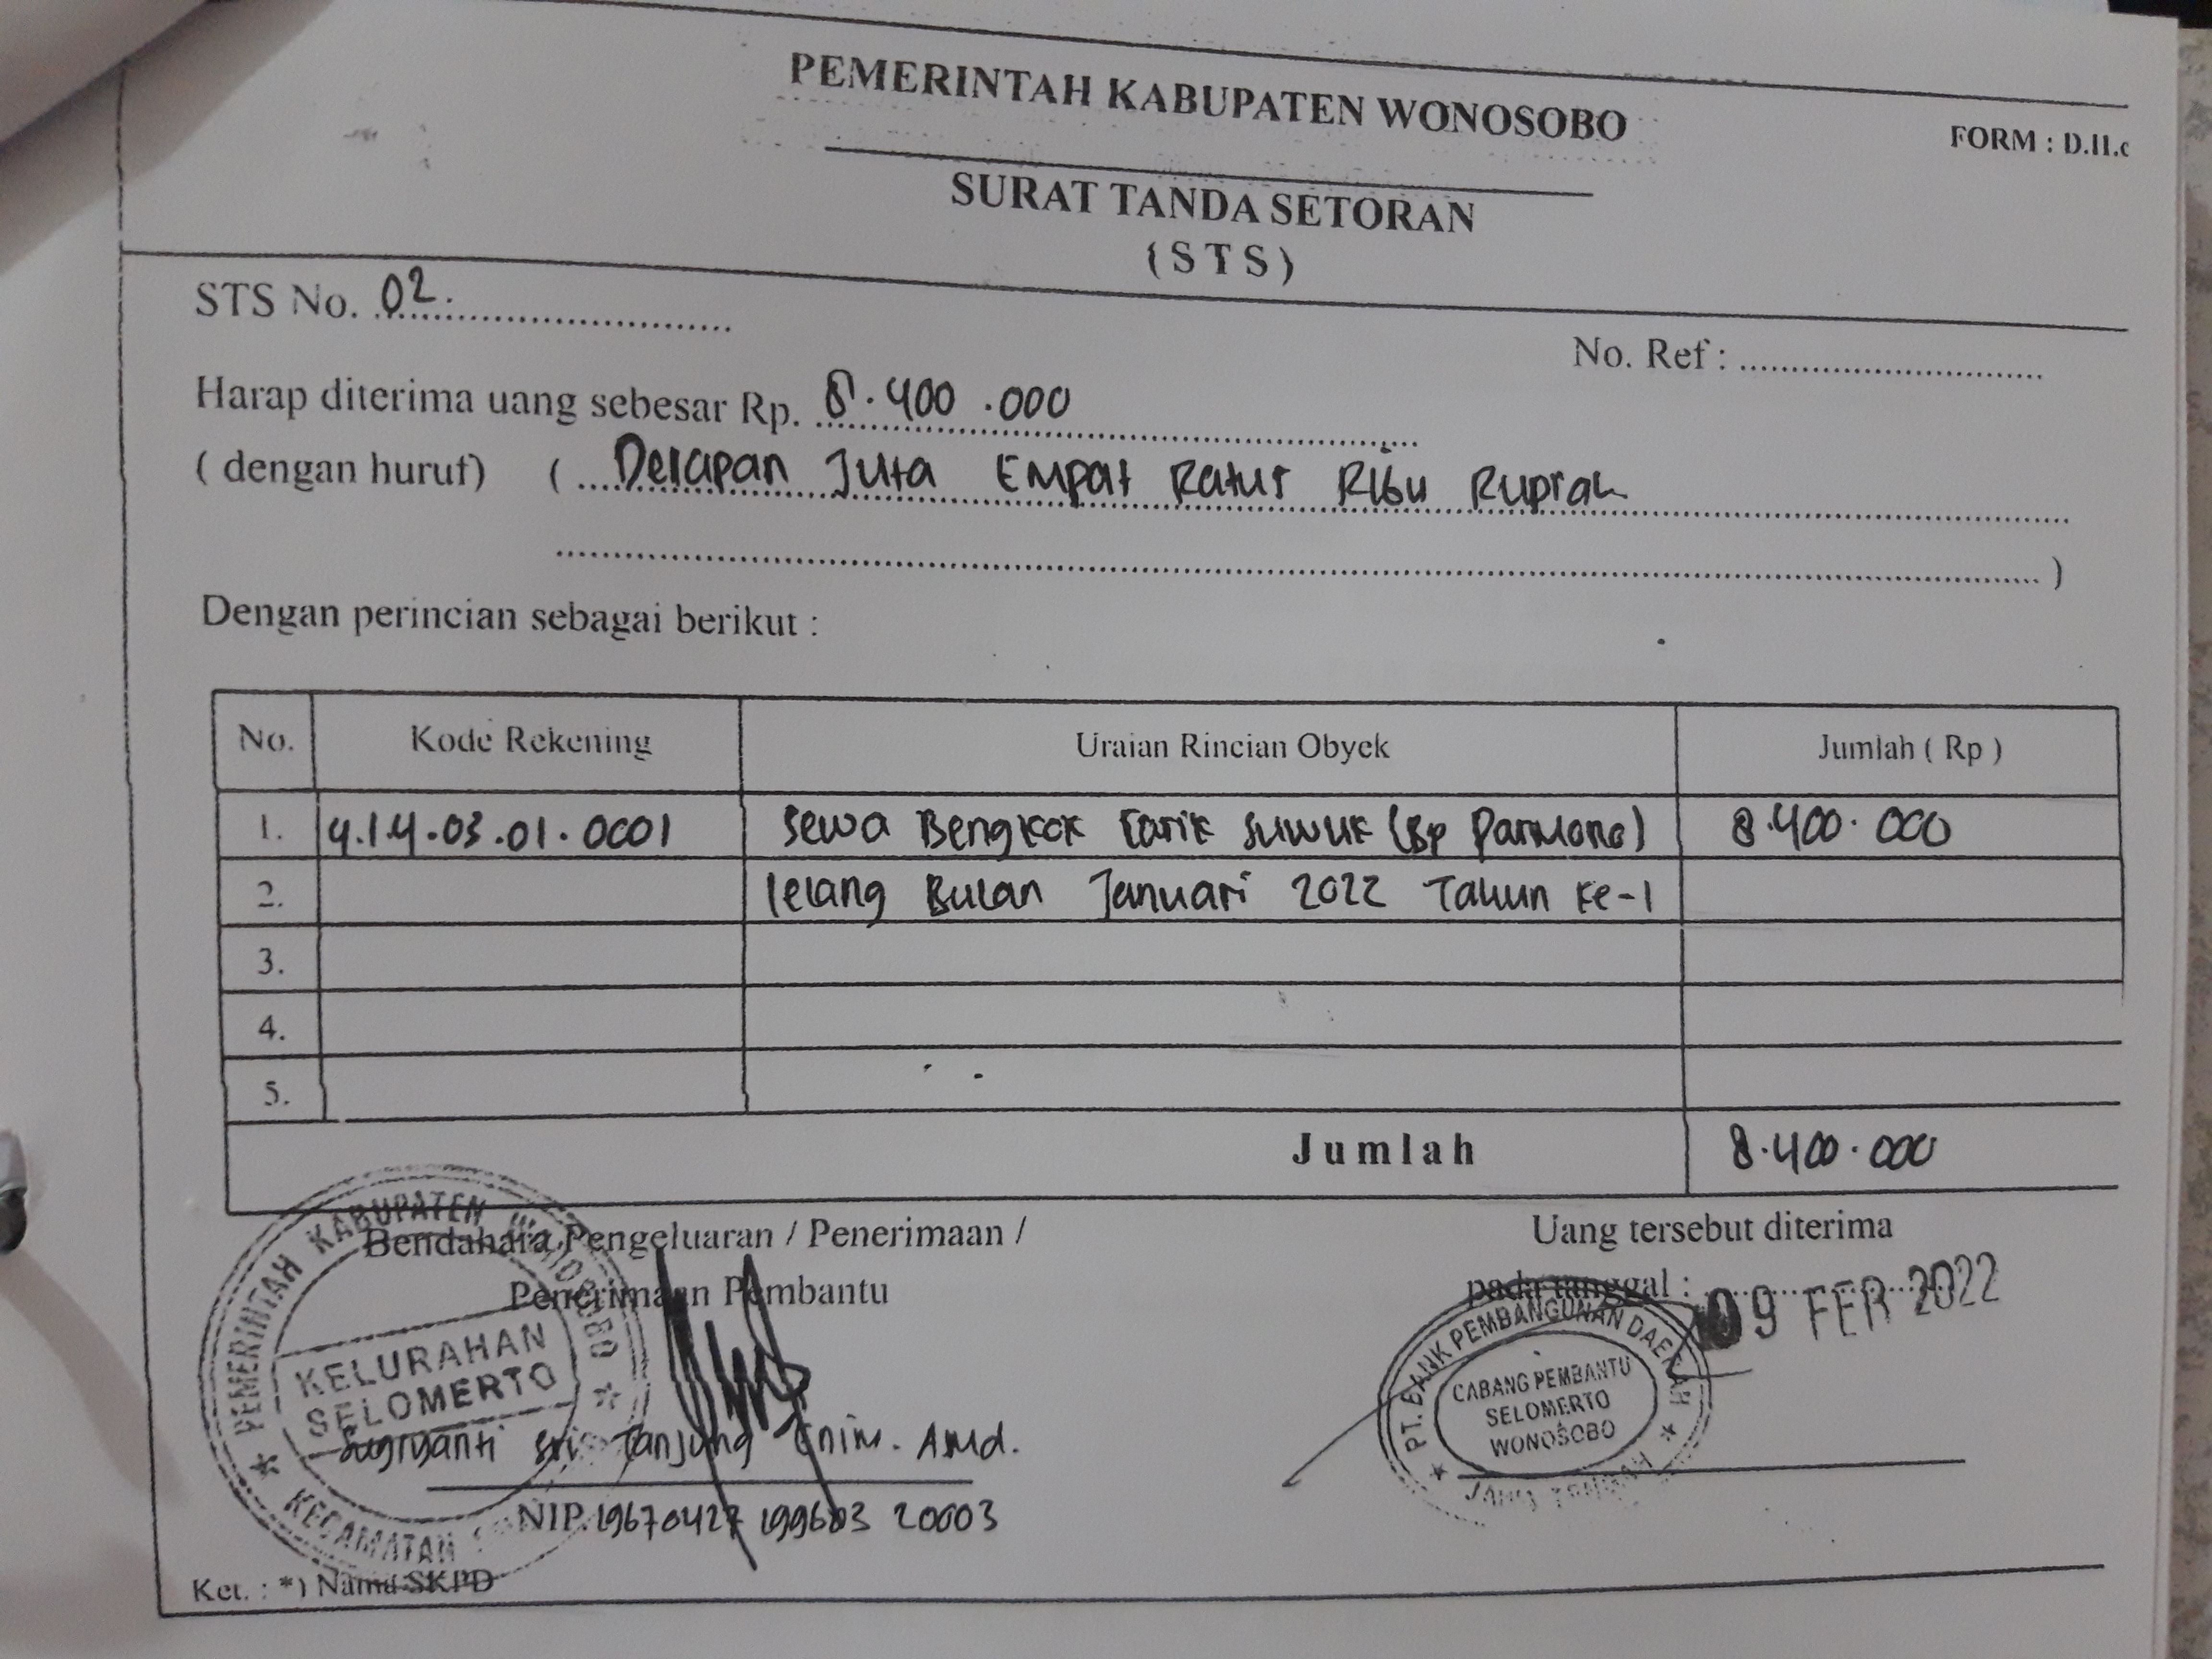 PEMERINTAH KABUPATEN WONOSOBO
FORM : D.II.c
SURAT TANDA SETORAN
( S T S )
STS No. 02.
No. Ref :
Harap diterima uang sebesar Rp. 8.400.000
( dengan huruf) ( Delapan Juta Empat Ratus Ribu Rupiah
)
Dengan perincian sebagai berikut :
No. Kode Rekening Uraian Rincian Obyek Jumlah ( Rp )
1. 4.1.4.03.01.0001 Sewa Bengkok Carik Suwuk (Bp Parmono) 8.400.000
2. lelang Bulan Januari 2022 Tahun ke-1
3.
4.
5.
Jumlah 8.400.000
Bendahara Pengeluaran / Penerimaan /
Penerimaan Pembantu
Uang tersebut diterima
pada tanggal : 09 FEB 2022
PEMERINTAH KABUPATEN WONOSOBO
KELURAHAN
SELOMERTO
KECAMATAN
PT. BANK PEMBANGUNAN DAERAH
CABANG PEMBANTU
SELOMERTO
WONOSOBO
JAWA TENGAH
Sugiyanti Sri Tanjung Amd.
NIP. 19670427 199603 20003
Ket. : *) Nama SKPD